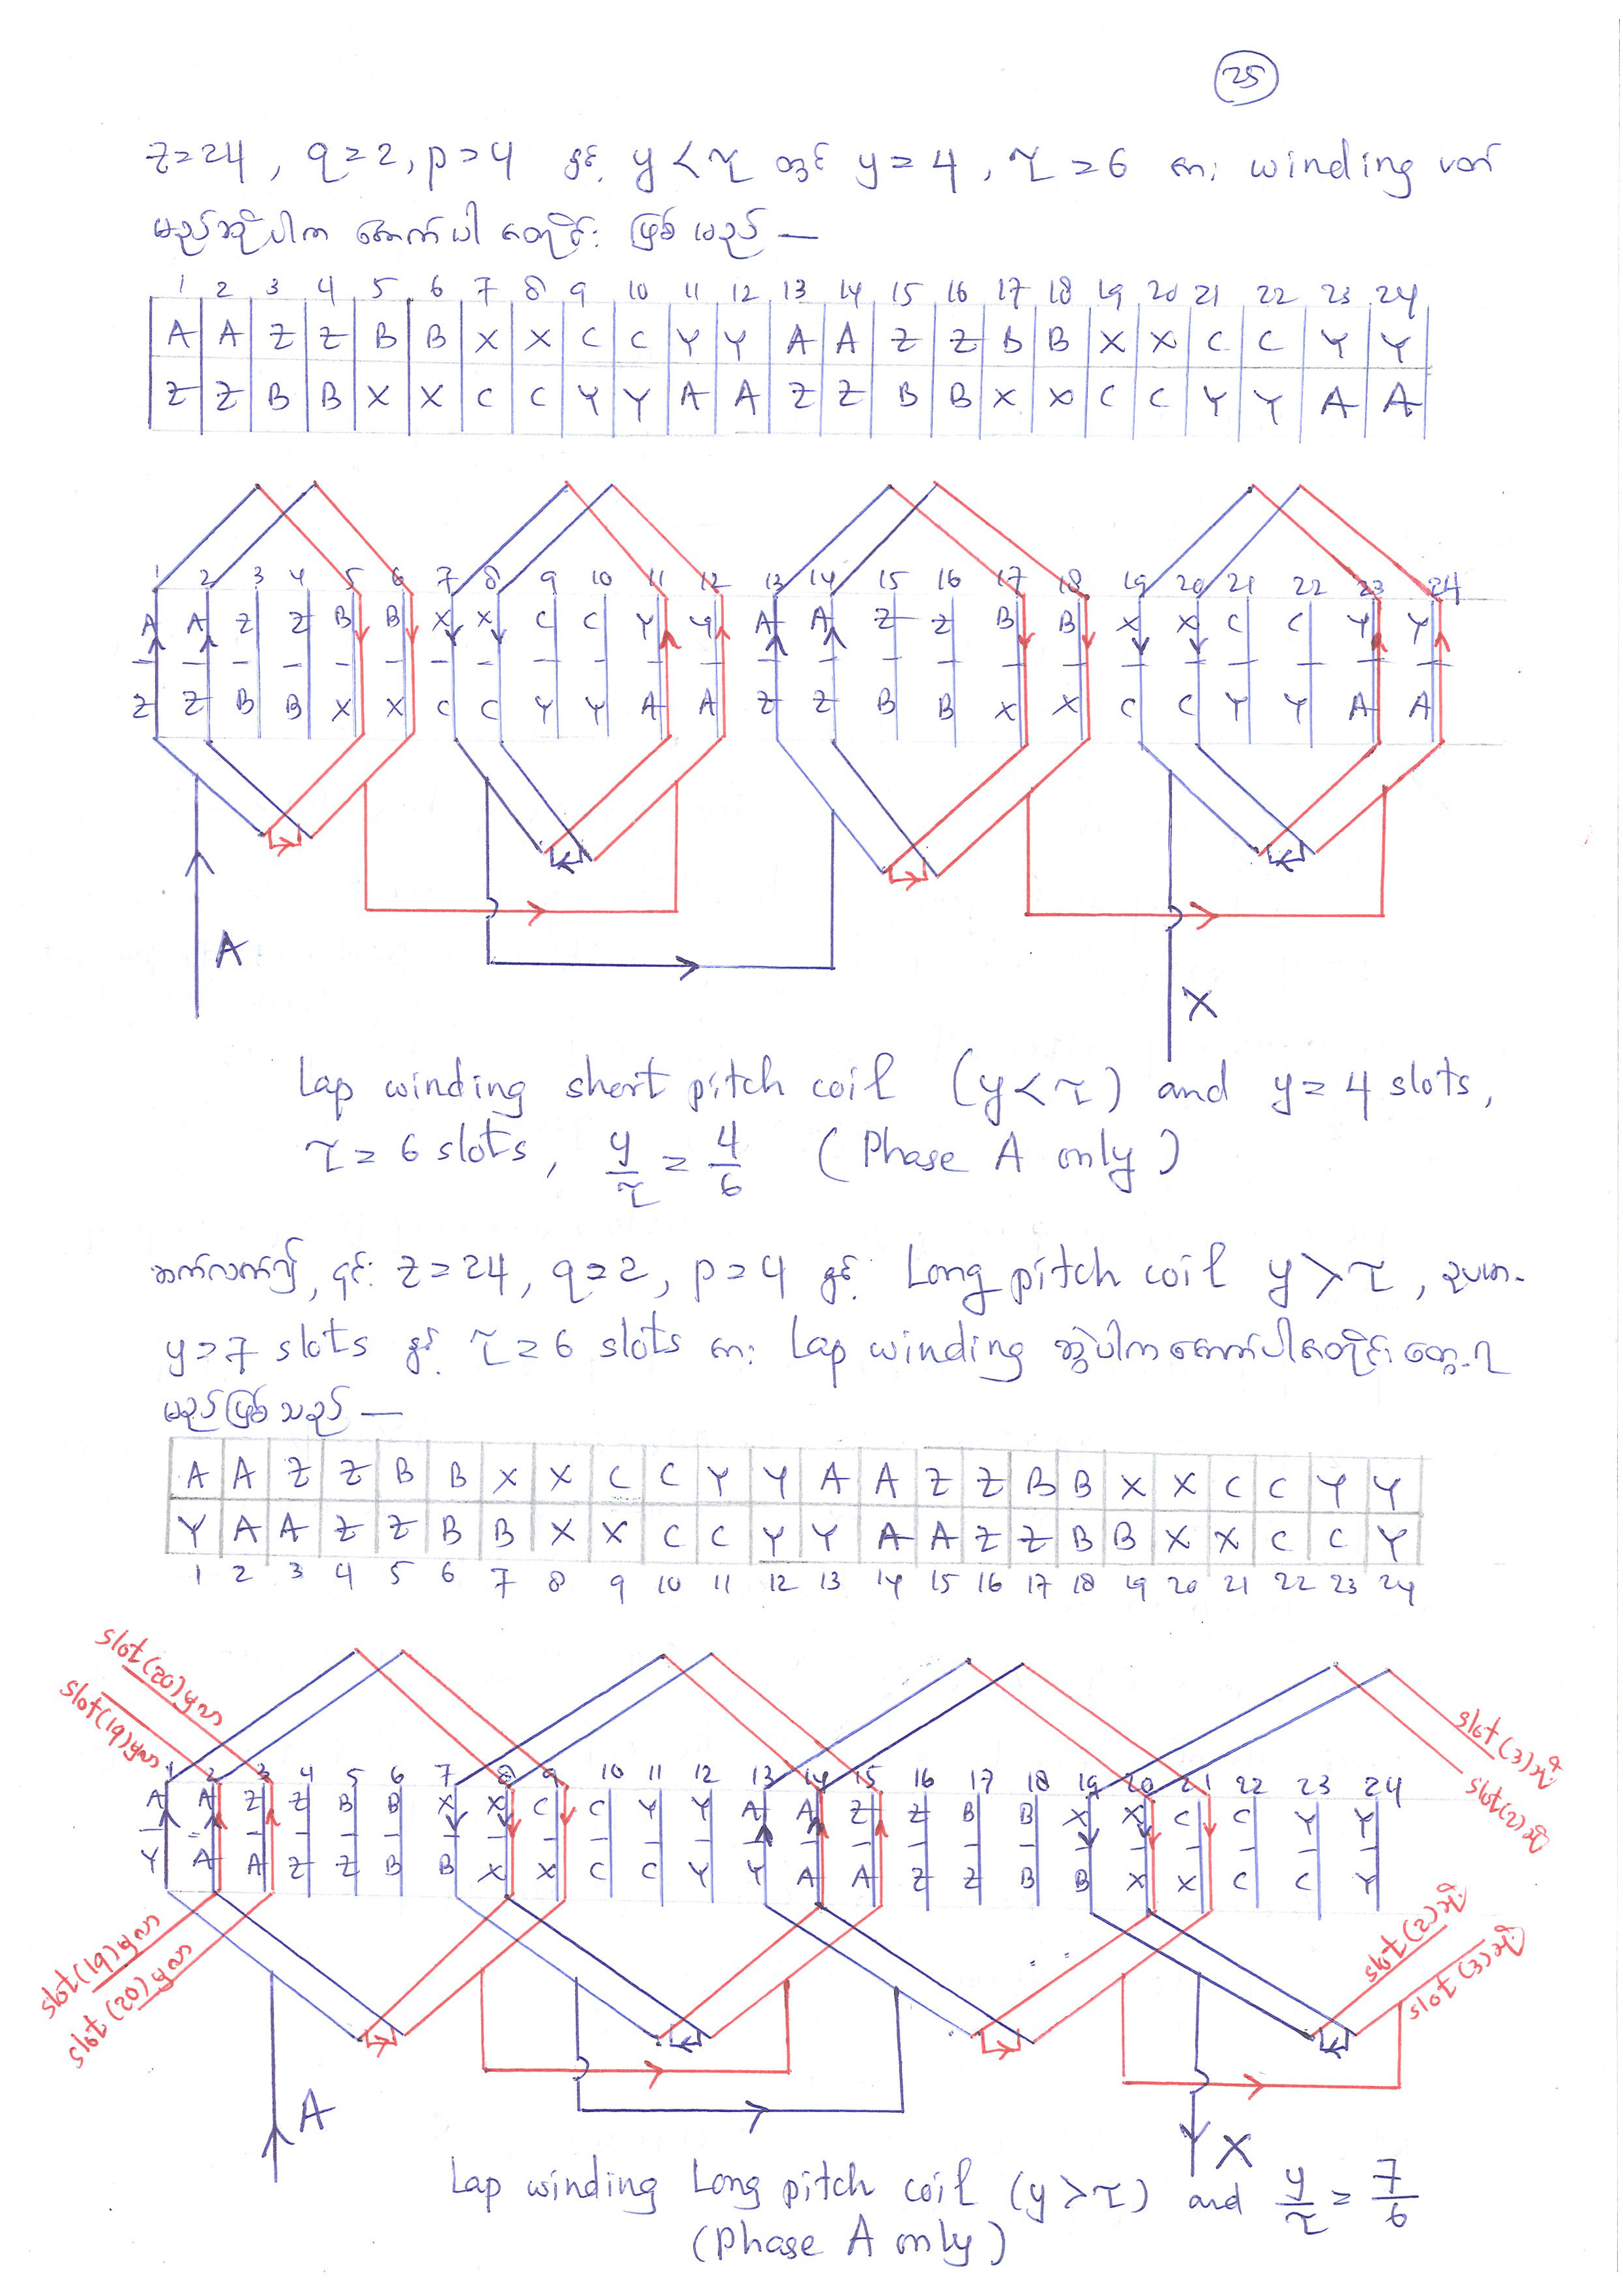 25
z=24, q=2, p=4 နှင့် y<τ တွင် y=4, τ=6 အား winding ပတ်
မည်ဆိုပါက အောက်ပါအတိုင်း ဖြစ်မည် —
1 2 3 4 5 6 7 8 9 10 11 12 13 14 15 16 17 18 19 20 21 22 23 24
A A Z Z B B X X C C Y Y A A Z Z B B X X C C Y Y
Z Z B B X X C C Y Y A A Z Z B B X X C C Y Y A A
1 2 3 4 5 6 7 8 9 10 11 12 13 14 15 16 17 18 19 20 21 22 23 24
A A Z Z B B X X C C Y Y A A Z Z B B X X C C Y Y
Z Z B B X X C C Y Y A A Z Z B B X X C C Y Y A A
A
X
Lap winding short pitch coil (y<τ) and y=4 slots,
τ=6 slots, y/τ = 4/6 (Phase A only)
ဆက်လက်၍, ၎င်း z=24, q=2, p=4 နှင့် Long pitch coil y>τ, ဥပမာ-
y=7 slots နှင့် τ=6 slots အား Lap winding ဆွဲပါက အောက်ပါအတိုင်း တွေ့ရ
မည်ဖြစ်သည် —
A A Z Z B B X X C C Y Y A A Z Z B B X X C C Y Y
Y A A Z Z B B X X C C Y Y A A Z Z B B X X C C Y
1 2 3 4 5 6 7 8 9 10 11 12 13 14 15 16 17 18 19 20 21 22 23 24
slot(20)မှလာ
slot(19)မှလာ
slot(3)သို့
slot(2)သို့
1 2 3 4 5 6 7 8 9 10 11 12 13 14 15 16 17 18 19 20 21 22 23 24
A A Z Z B B X X C C Y Y A A Z Z B B X X C C Y Y
Y A A Z Z B B X X C C Y Y A A Z Z B B X X C C Y
slot(19)မှလာ
slot(20)မှလာ
slot(2)သို့
slot(3)သို့
A
X
Lap winding Long pitch coil (y>τ) and y/τ = 7/6
(Phase A only)